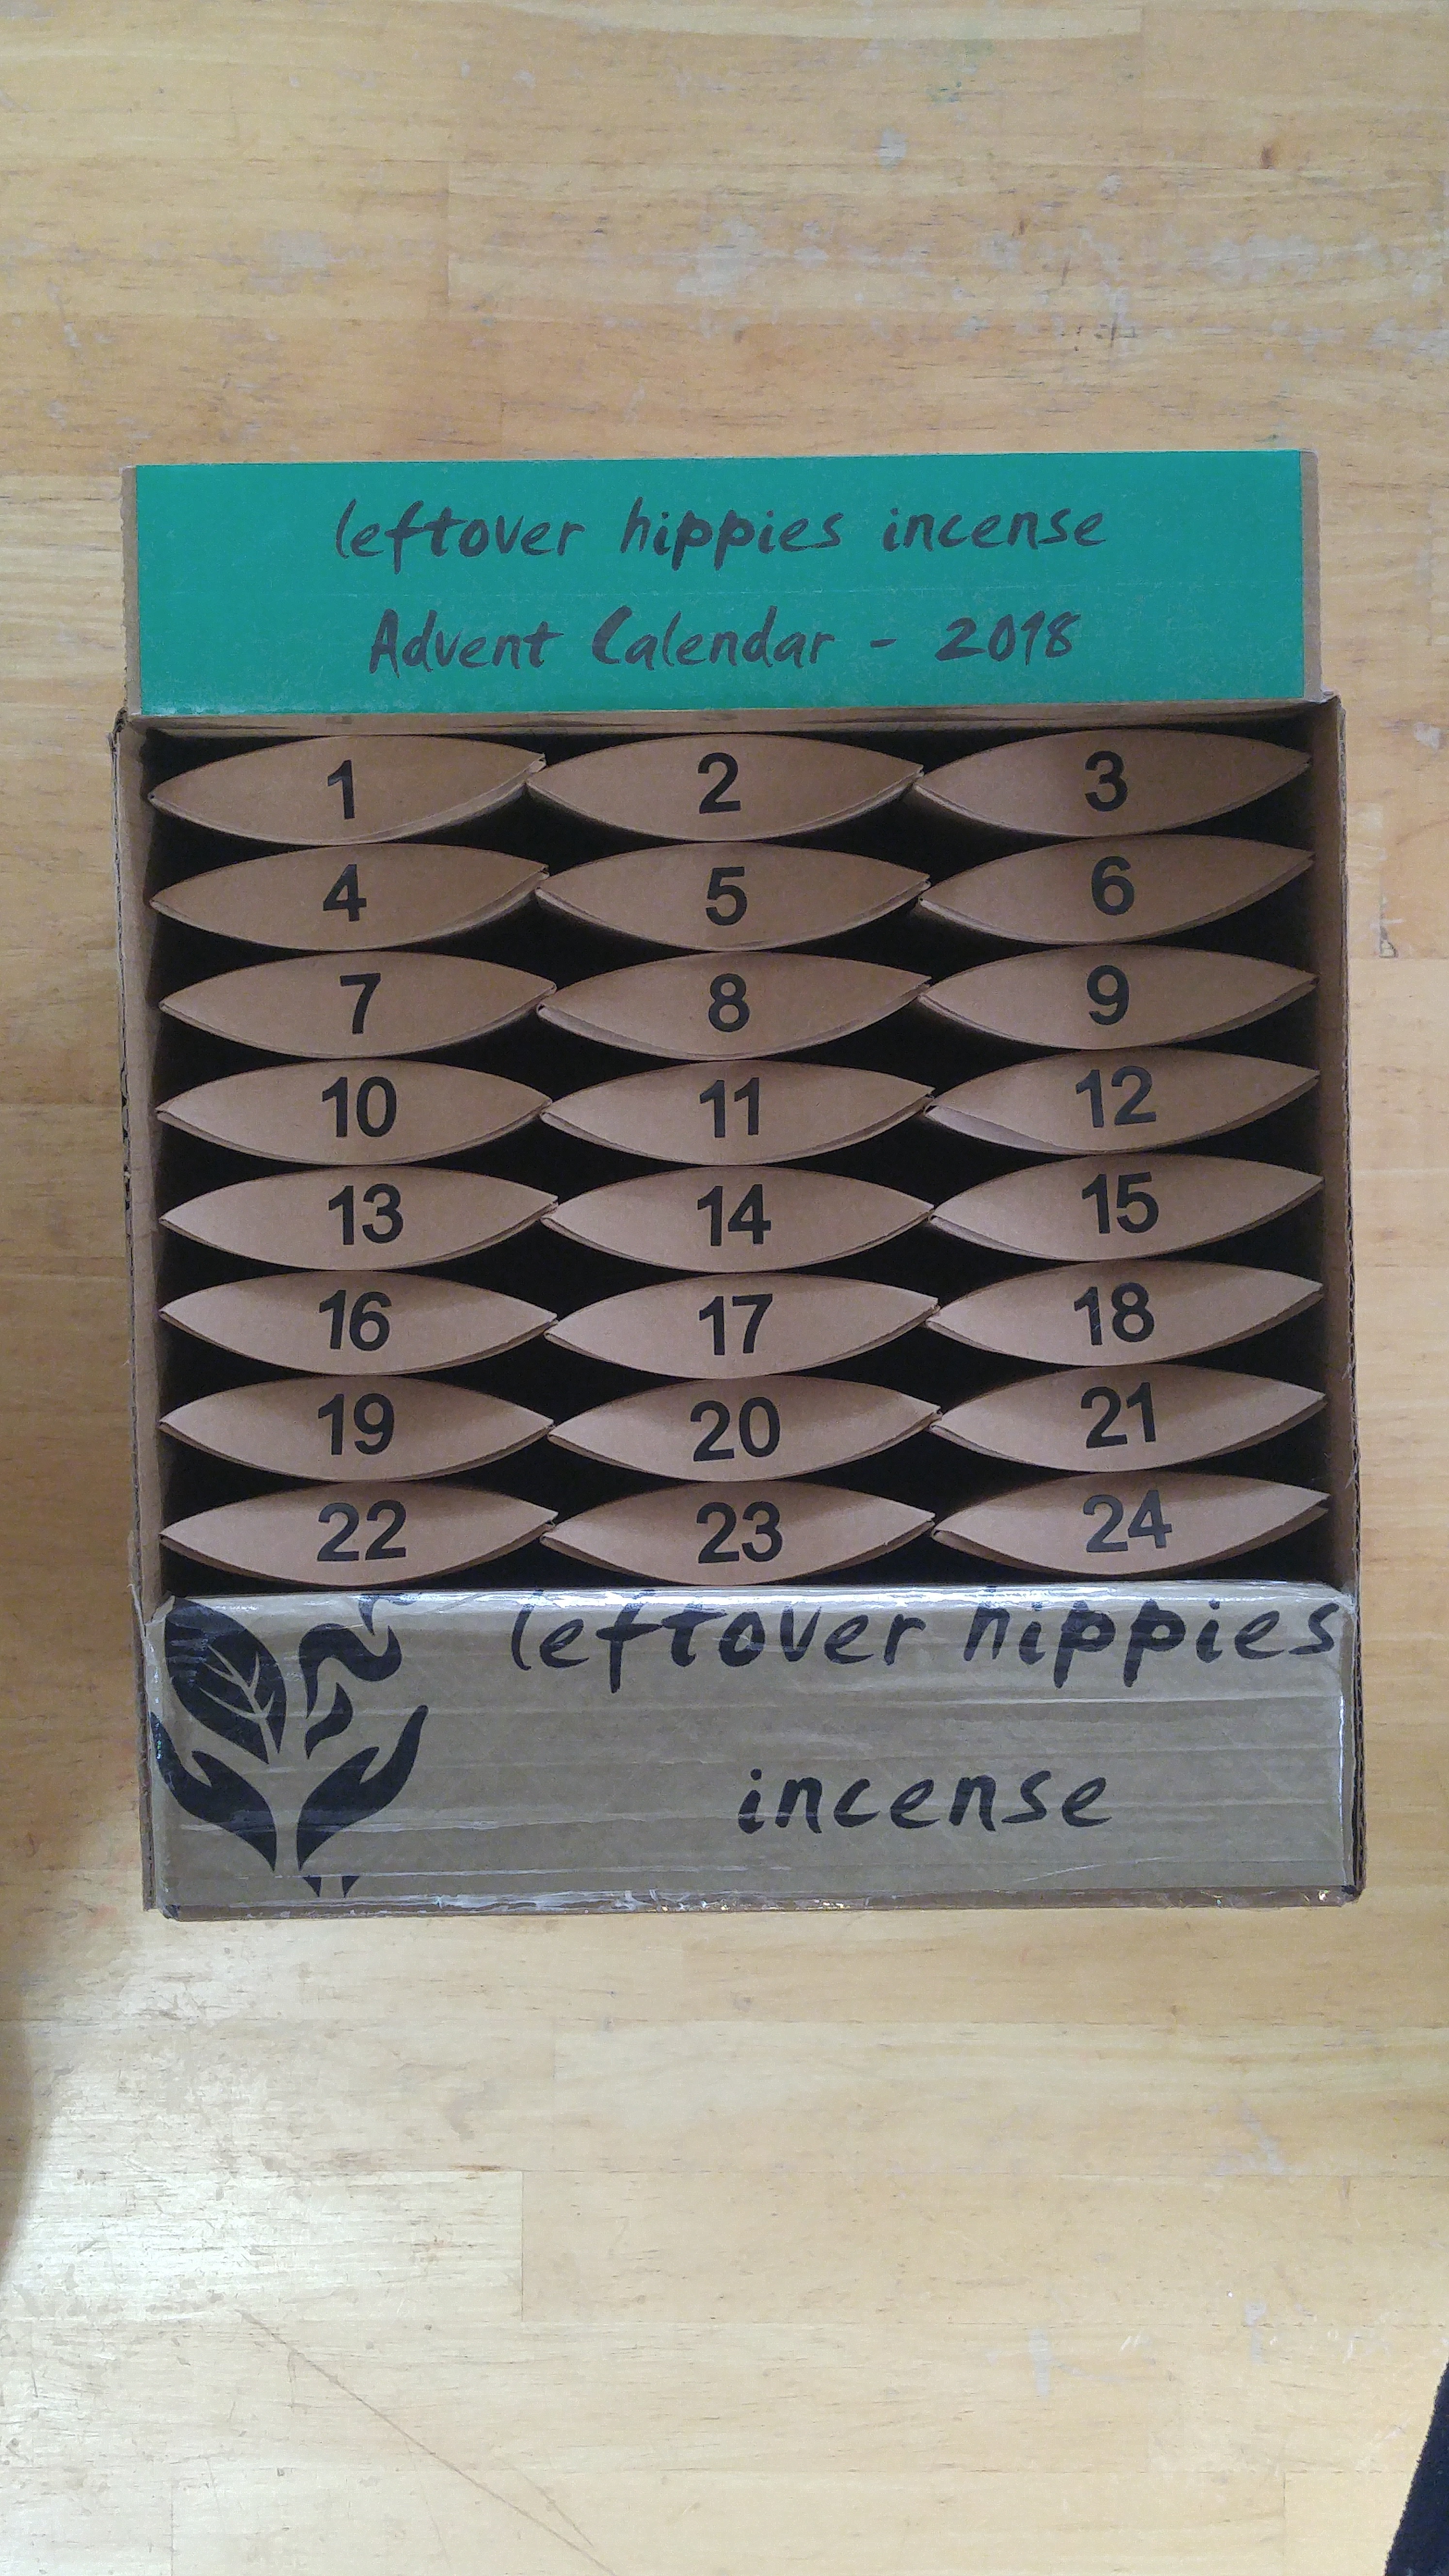 leftover hippies incense
Advent Calendar - 2018
1 2 3
4 5 6
7 8 9
10 11 12
13 14 15
16 17 18
19 20 21
22 23 24
leftover hippies
incense